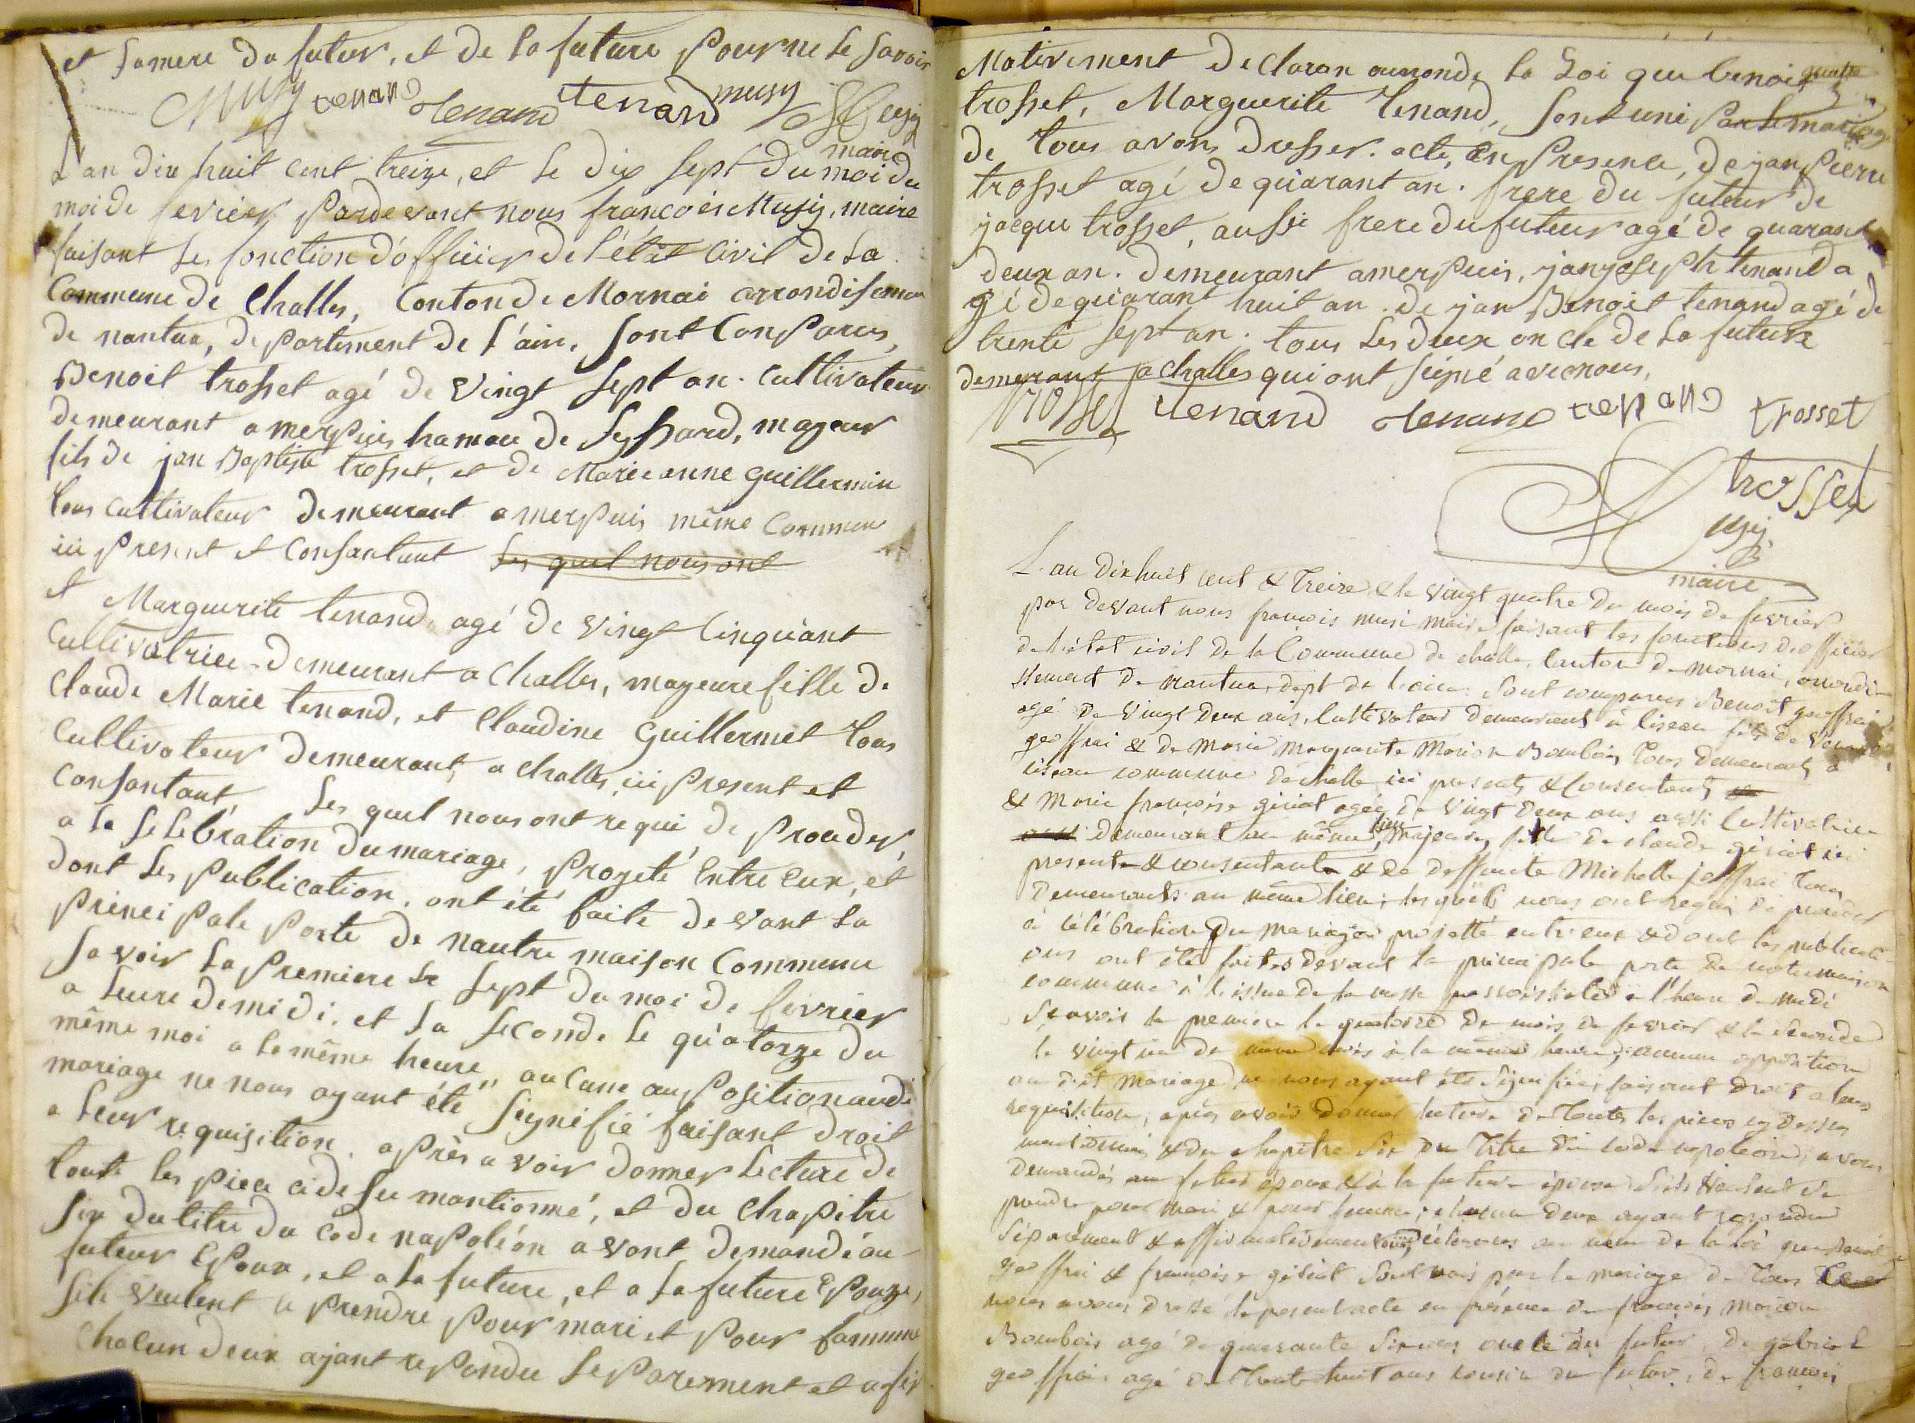 et sa mere du futur, et de la future pour ne le savoir
Musy tenand tenand tenand musy
maire
L'an dix huit cent treize, et le dix sept du moi du
moi de fevrier pardevant nous francois Musy, maire
faisant les fonction d'officier de l'état civil de la
Commune de Challes, Conton de Mornai arrondisemen
de nantua, departement de l'ain, sont Comparus,
Benoit trosset agé de vingt sept an. cultivateur
demeurant a merpuis hamau de Syssard, majeur
fils de jan Baptiste trosset, et de Marie anne guillermin
tous cultivateur demeurant a merpuis même Commun
ici present et Consantant les quel nous ont
et Marguerite tenand agé de vingt Cinq an
Cultivatrice demeurant a Challes, mageure fille de
Claude Marie tenand, et Claudine Guillermet tous
Cultivateur demeurant a Challes, ici present et
Consantant, les quel nous ont requi de proceder
a la selébration du mariage, progeté entre eux, et
dont les publication, ont été faite devant la
principale porte de nautre maison Commune
savoir la premiere le sept du moi de fevrier
a leure demidi, et la seconde le quatorze du
même moi a la même heure, aucune aupositionaudi
mariage ne nous ayant été signifié faisant droit
a leur requisition, après avoir donner lecture de
toute les piece cidesu mantionné, et du Chapitre
six du titre du Code napoléon avont demandé au
futeur Epoux, et a la future, et a la future Epouze,
sils veulent se prendre pour mari et pour famme
Chacun deux ajant repondu separement et afir
Mativement declaron aunonde la Loi que benoit
trosset, Marguerite tenand, sont uni par le mariage
de tous avons dresser acte, en presence, de jan pierre
trosset agé de quarant an. frere du futeur de
jacque trosset, aussi frere du futeur agé de quarant
deux an. demeurant a merpuis, jan joseph tenand a
gé de quarant huit an. de jan Benoit tenand agé de
trente sept an. tous les deux oncle de la future
demeurant a challes qui ont signé avec nous,
tenand tenand tenand trosset
trosset
maire
L'an dix huit cent & treize & le vingt quatre du mois de fevrier
par devant nous francois musi maire faisant les fonctions d'officier
de l'état civil de la Commune de challe, canton de mornai, arrondi-
ssement de nantua, dept de l'ain. Sont comparus Benoit geoffrai
agé de vingt deux ans, Cultivateur demeurant a liseau fils de
geoffrai & de marie marguerite Bombois tous demeurants à
liseau commune de challe ici presents & consentants
& marie françoise gériat agée de vingt deux ans aussi Cultivatrice
demeurant au même lieu, majeure, fille de claude gériat ici
present & consentant & de deffunte Michelle joffrai tous
demeurants au même lieu, les quels nous ont requis de proceder
à célébration du mariage projetté entre eux & dont les publicati-
ons ont été faites devant la principale porte de notre maison
commune à l'issue de la messe parroissiale à l'heure de midi
Scavoir la premiere le quatorze du mois de fevrier & la seconde
le vingt un du même mois à la même heure, aucune opposition
au dit mariage ne nous ayant été signifiée, faisant droit a leur
requisition, après avoir donner lecture de toutes les pieces cy dessus
mentionnées & du chapitre six du titre du code napoleon, avons
demandés au futur époux & à la future épouse s'ils veulent se
prendre pour mari & pour femme, chacun deux ayant repondu
séparement & affirmativement déclarons au nom de la loi que benoit
geoffrai & françoise gériat sont unis par le mariage de tous
nous avons dressé le present acte en présence de françois
Bombois agé de quarante oncle du futur, de gabriel
geoffrai agé de trente huit ans cousin du futur, de françois